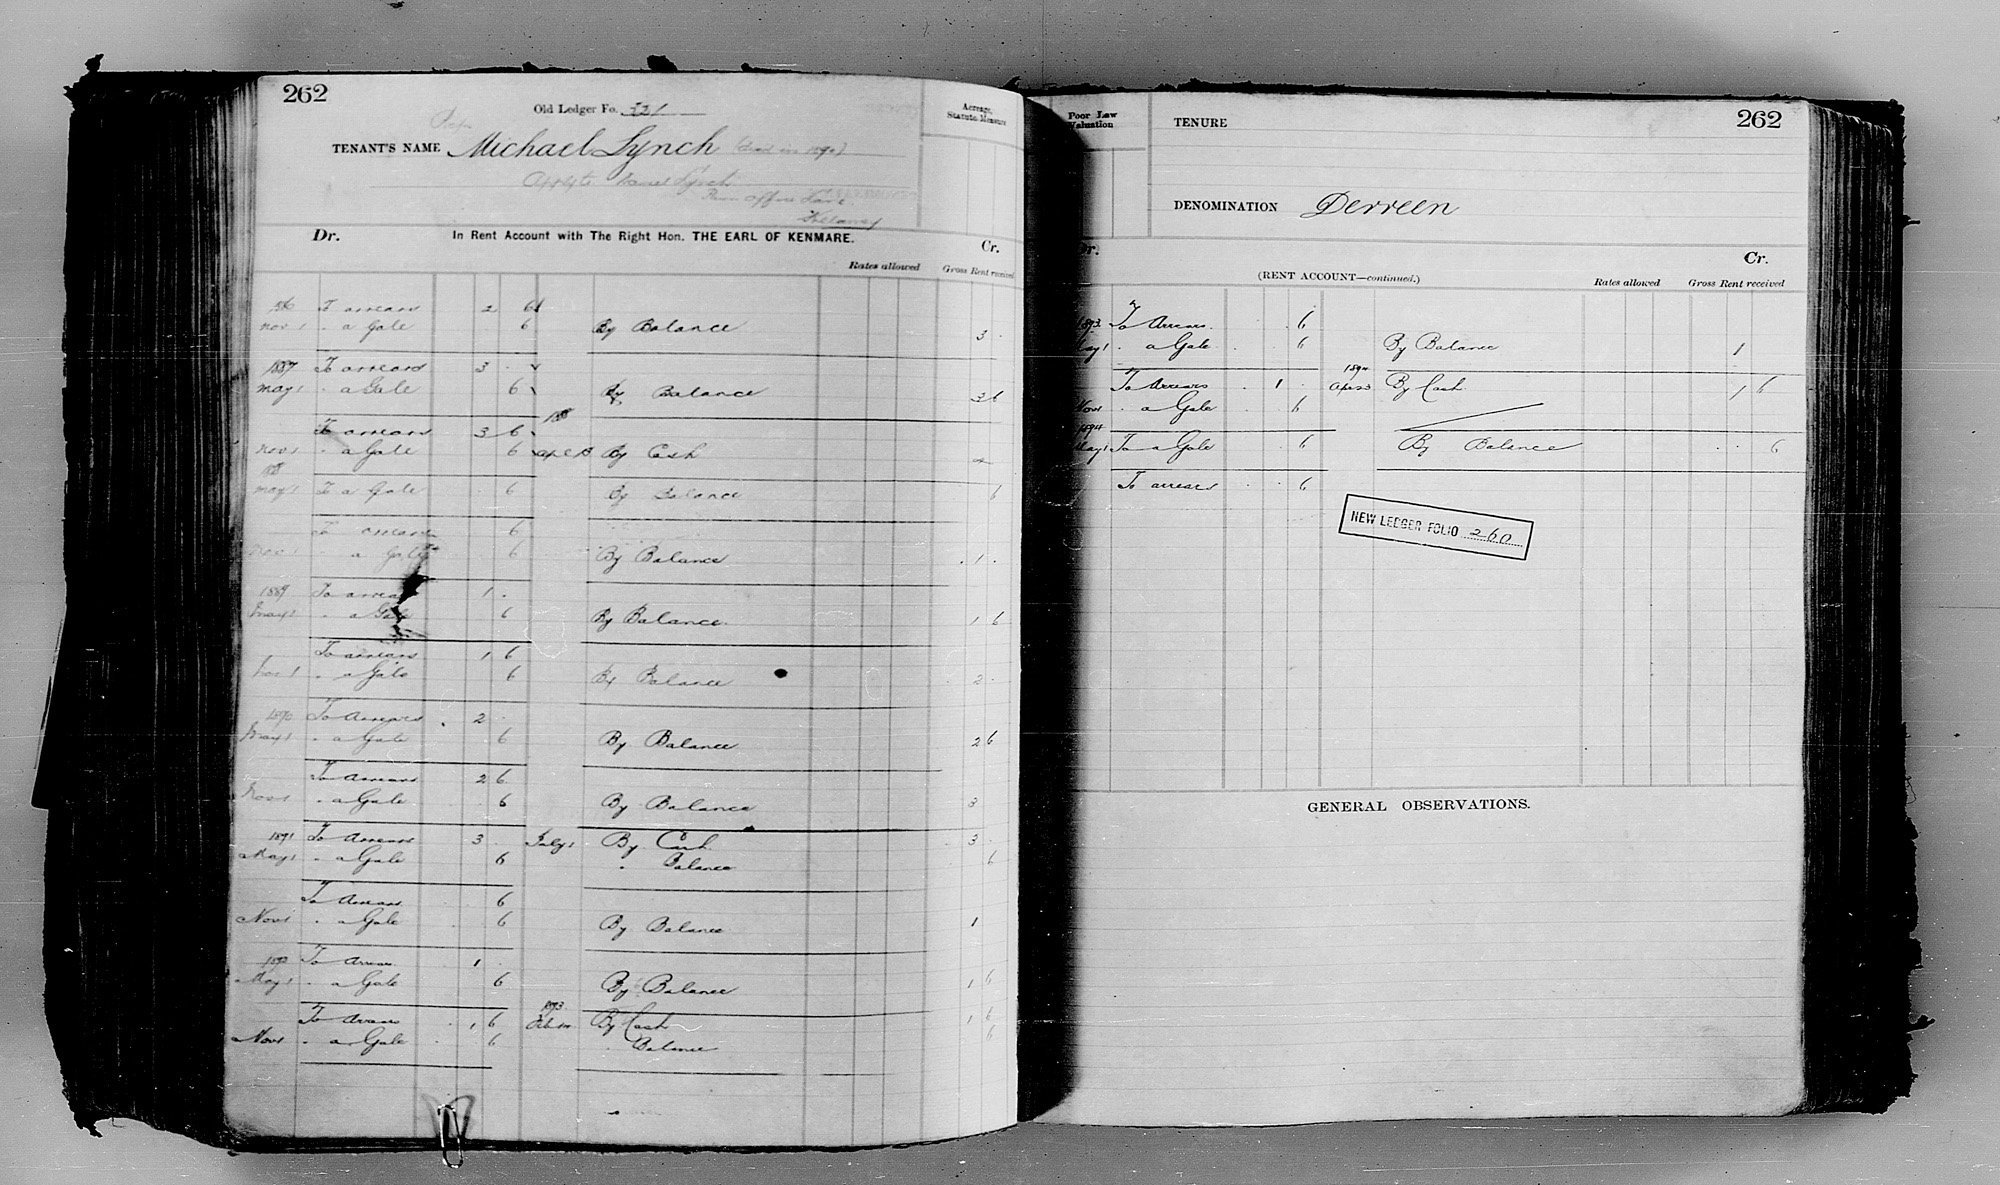 262
Old Ledger Fo. 321
Acreage, Statute Measure
Reps
TENANT'S NAME Michael Lynch (dead in 1890)
Apply to Lynch
Office Lane
Killarney
Dr. In Rent Account with The Right Hon. THE EARL OF KENMARE. Cr.
Rates allowed Gross Rent received
86 To arrears 2 6
Nov 1 " a Gale 6 By Balance 3 "
1887 To arrears 3 "
May 1 " a Gale 6 By Balance 3 6
To arrears 3 6 188
Nov 1 " a Gale 6 By Cash
188
May 1 To a Gale 6 By Balance 6
To arrears 6
Nov 1 " a Gale 6 By Balance 1 "
1889 To arrears 1 "
May 1 " a Gale 6 By Balance 1 6
To arrears 1 6
Nov 1 " a Gale 6 By Balance 2 "
1890 To Arrears 2 "
May 1 " a Gale 6 By Balance 2 6
To Arrears 2 6
Nov 1 " a Gale 6 By Balance 3
1891 To Arrears 3 " July 1 By Cash 3 "
May 1 " a Gale 6 " Balance 6
To Arrears 6
Nov 1 " a Gale 6 By Balance 1
1892 To Arrears 1 "
May 1 " a Gale 6 By Balance 1 6
1893
To Arrears 1 6 Feb By Cash 1 6
Nov 1 " a Gale 6 " Balance 6
Poor Law Valuation
TENURE
262
DENOMINATION Derreen
Dr. Cr.
(RENT ACCOUNT—continued.)
Rates allowed Gross Rent received
1893 To Arrears 6
May 1 " a Gale 6 By Balance 1
1894
To Arrears 1 " Apl 23 By Cash 1 6
Nov 1 " a Gale 6
1894
May 1 To a Gale 6 By Balance 6
To arrears 6
NEW LEDGER FOLIO 260
GENERAL OBSERVATIONS.